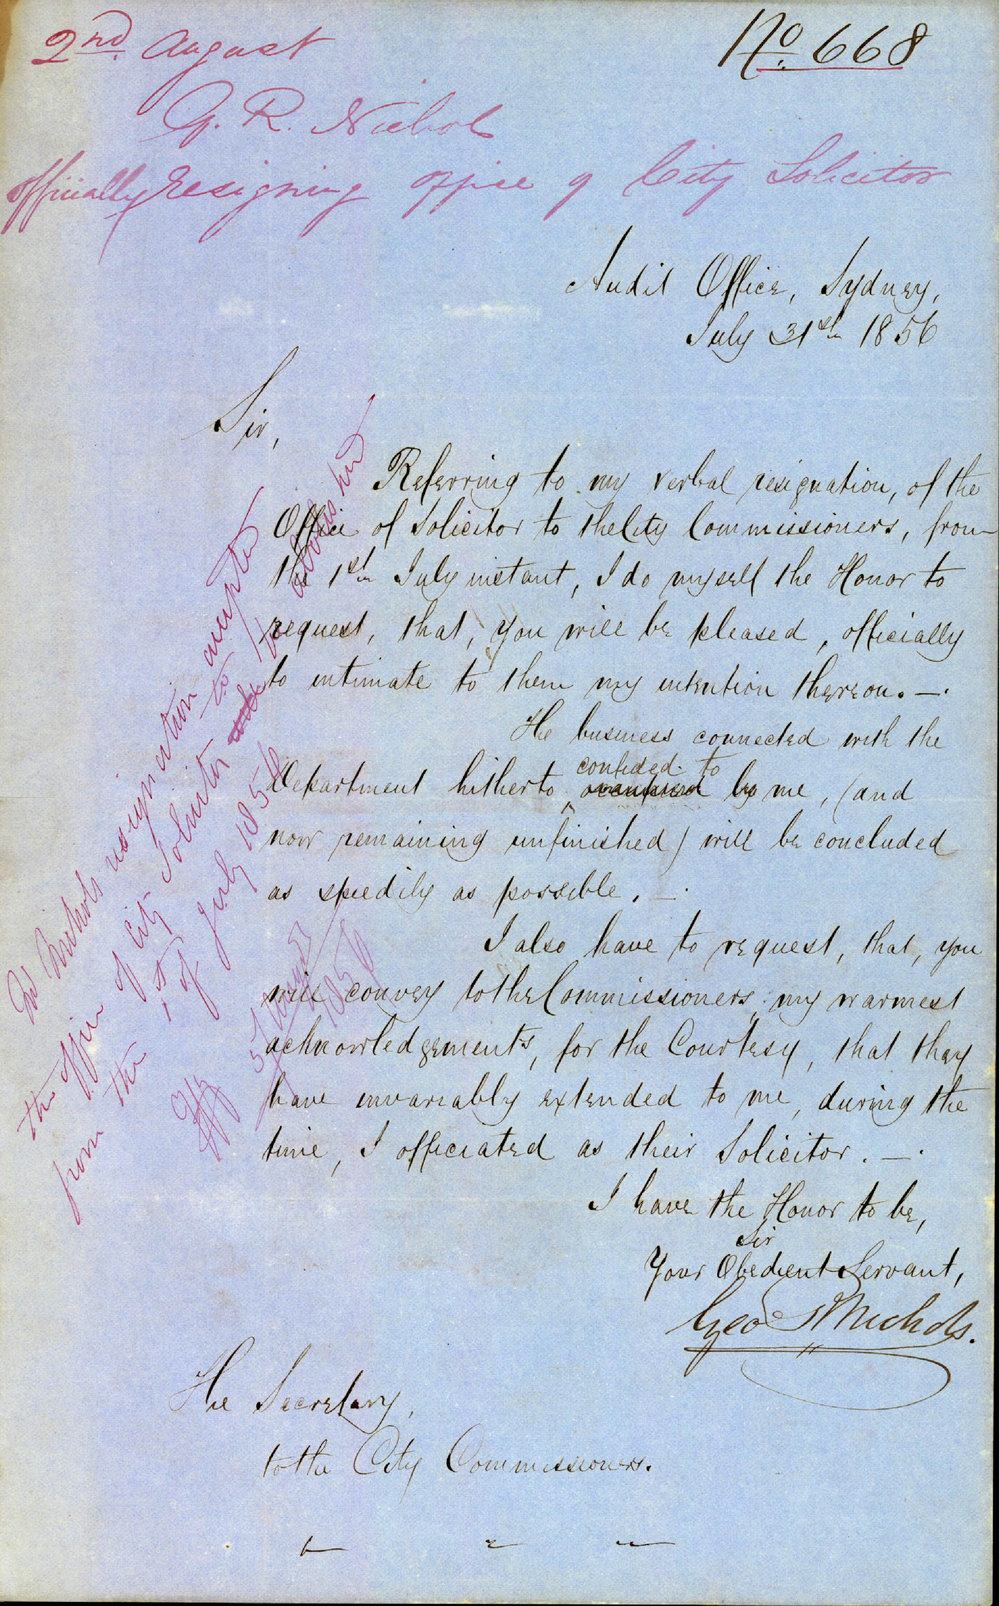 2nd. August
No. 668
G. R. Nichol
officially resigning office of City Solicitor
Audit Office, Sydney,
July 31st 1856
Sir,
Referring to my verbal resignation, of the
Office of Solicitor to the City Commissioners, from
the 1st July instant, I do myself the Honor to
request, that, you will be pleased, officially
to intimate to them my intention thereon. —.
The business connected with the
confided to
Department hitherto by me, (and
now remaining unfinished) will be concluded
as speedily as possible. —.
I also have to request, that, you
will convey to the Commissioners, my warmest
acknowledgements, for the Courtesy, that they
have invariably extended to me, during the
time, I officiated as their Solicitor. —.
I have the Honor to be,
Sir
Your Obedient Servant,
Geo R Nichols.
The Secretary,
to the City Commissioners.
Mr Nichols resignation accepted
the office of City Solicitor to
from the 1st of July 1856
5 August
1856